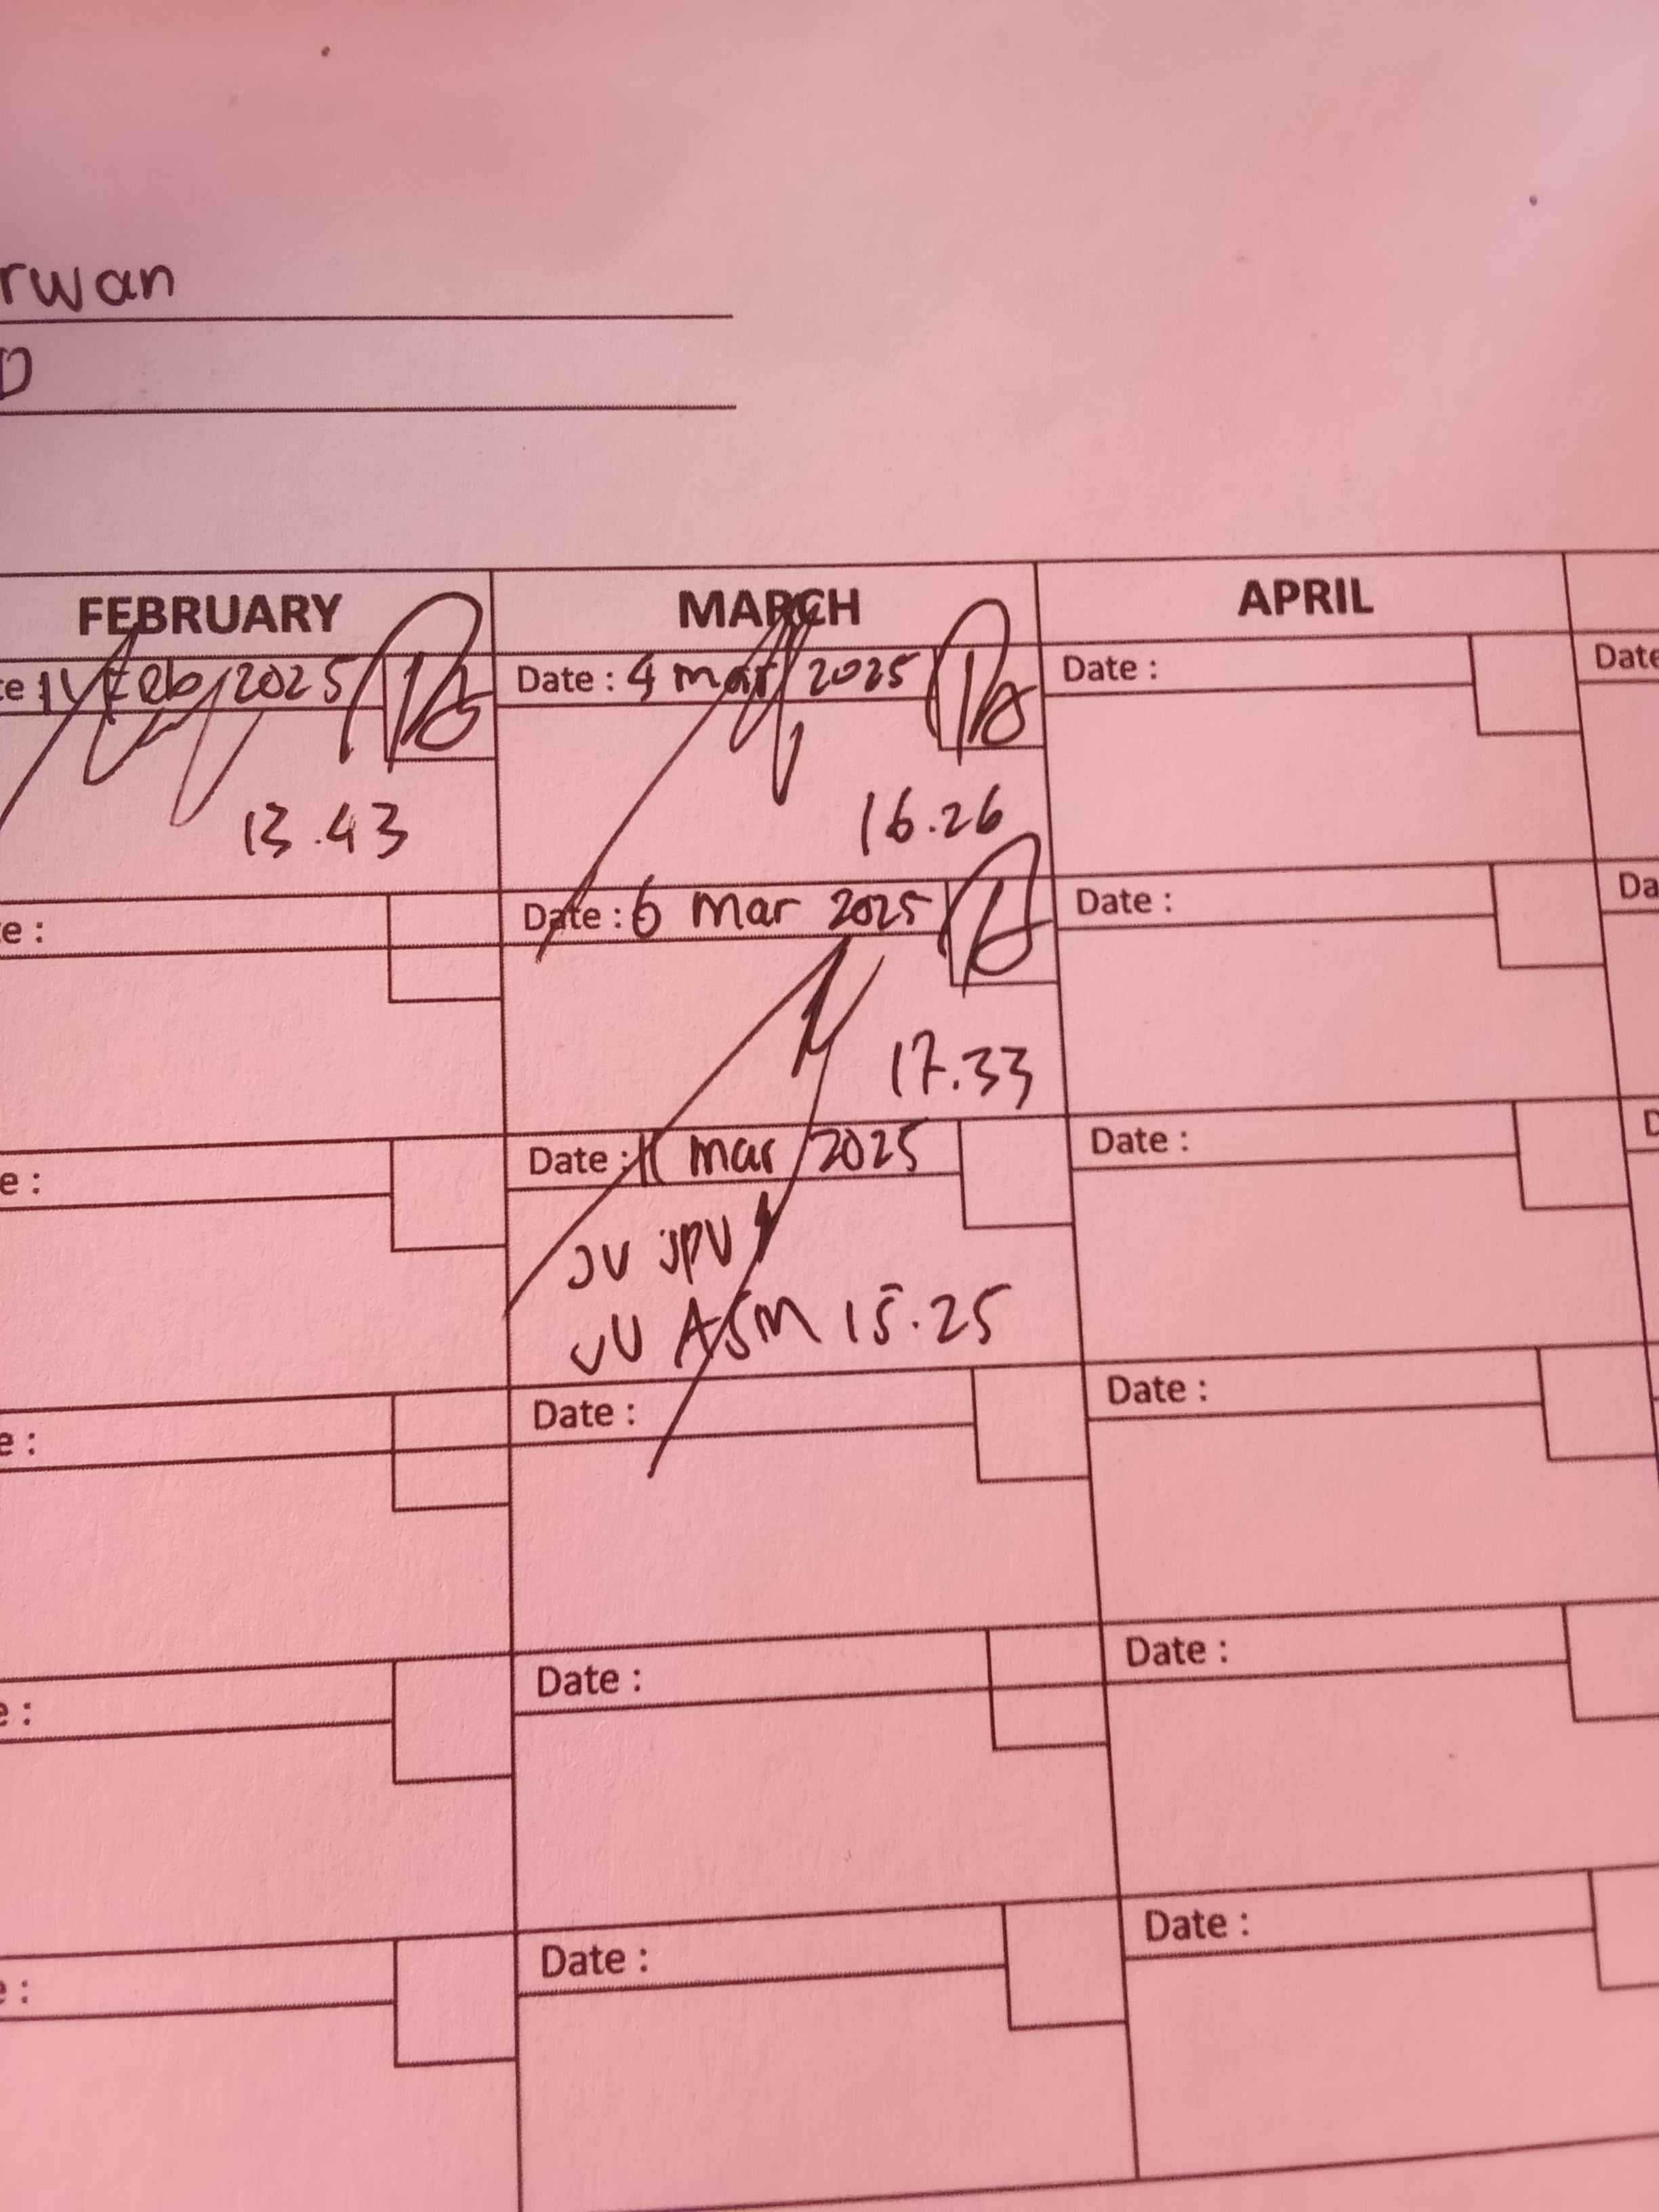 rwan
D
FEBRUARY MARCH APRIL
e : Feb 2025 Date : 4 mar 2025 Date : Date
13.43 16.26
e : Date : 6 Mar 2025 Date : Da
17.33
e : Date : 11 mar 2025 Date : D
JV JPU
JU ASM 15.25
e : Date : Date :
e : Date : Date :
e : Date : Date :